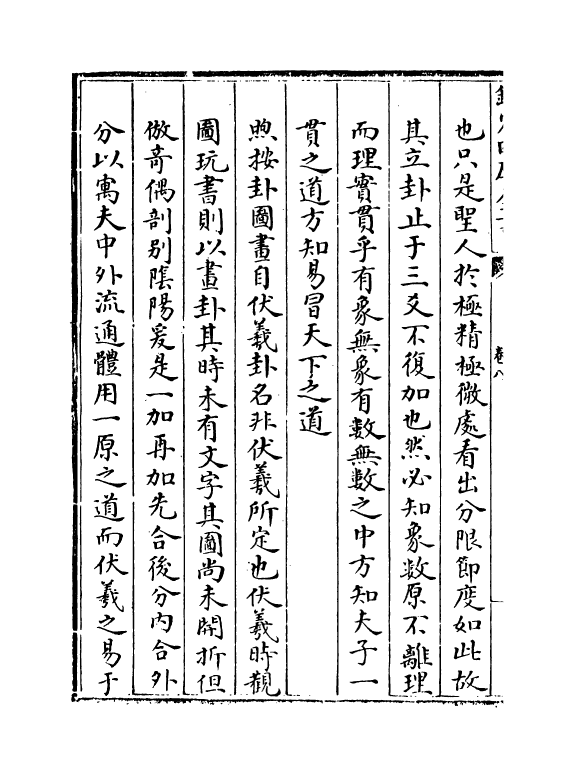 卷八
也只是聖人於極精極微處看出分限節度如此故
其立卦止于三爻不復加也然必知象数原不離理
而理實貫乎有象無象有數無數之中方知夫子一
貫之道方知易冒天下之道
煦按卦圖畫自伏羲卦名非伏羲所定也伏羲時觀
圖玩書則以畫卦其時未有文字其圖尚未開折但
倣奇偶剖别隂陽爰是一加再加先合後分内合外
分以寓夫中外流通體用一原之道而伏羲之易于